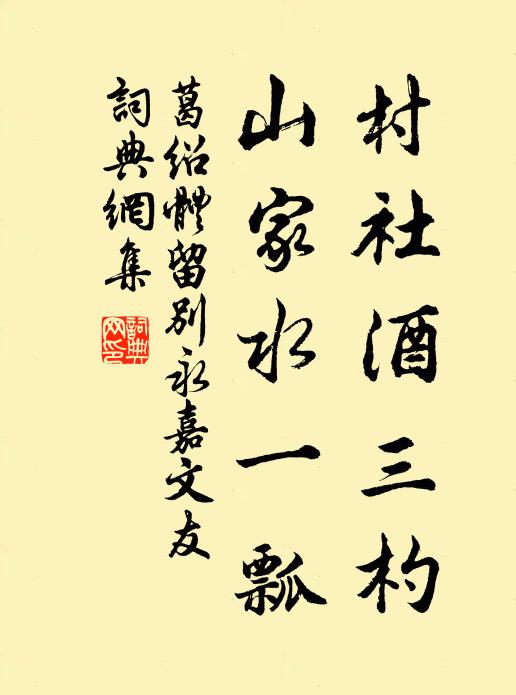 村社酒三杓
山家水一瓢
葛绍體留別永嘉文友
詞典網集
詞典網印